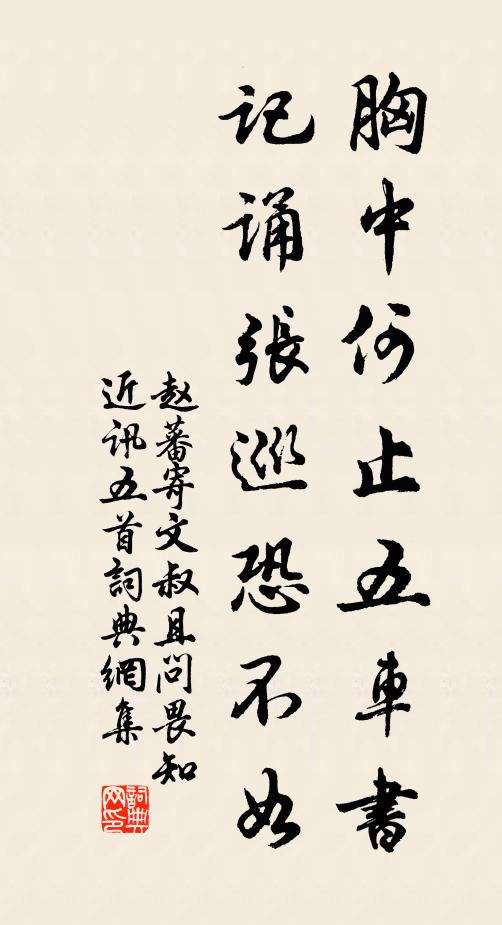 胸中何止五車書
記誦張巡恐不如
赵蕃寄文叔且問畏知
近訊五首詞典網集
詞典網印